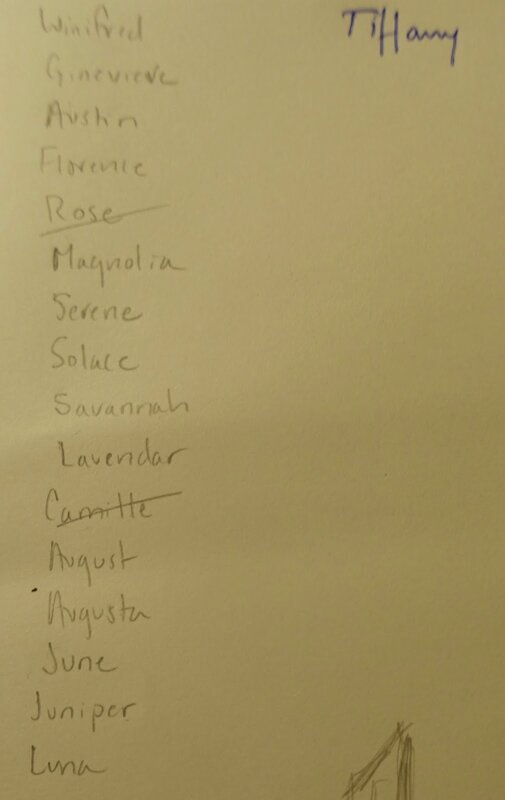 Winifred
Tiffany
Ginevieve
Austin
Florence
Rose
Magnolia
Serene
Solace
Savannah
Lavendar
Camille
August
Augusta
June
Juniper
Luna